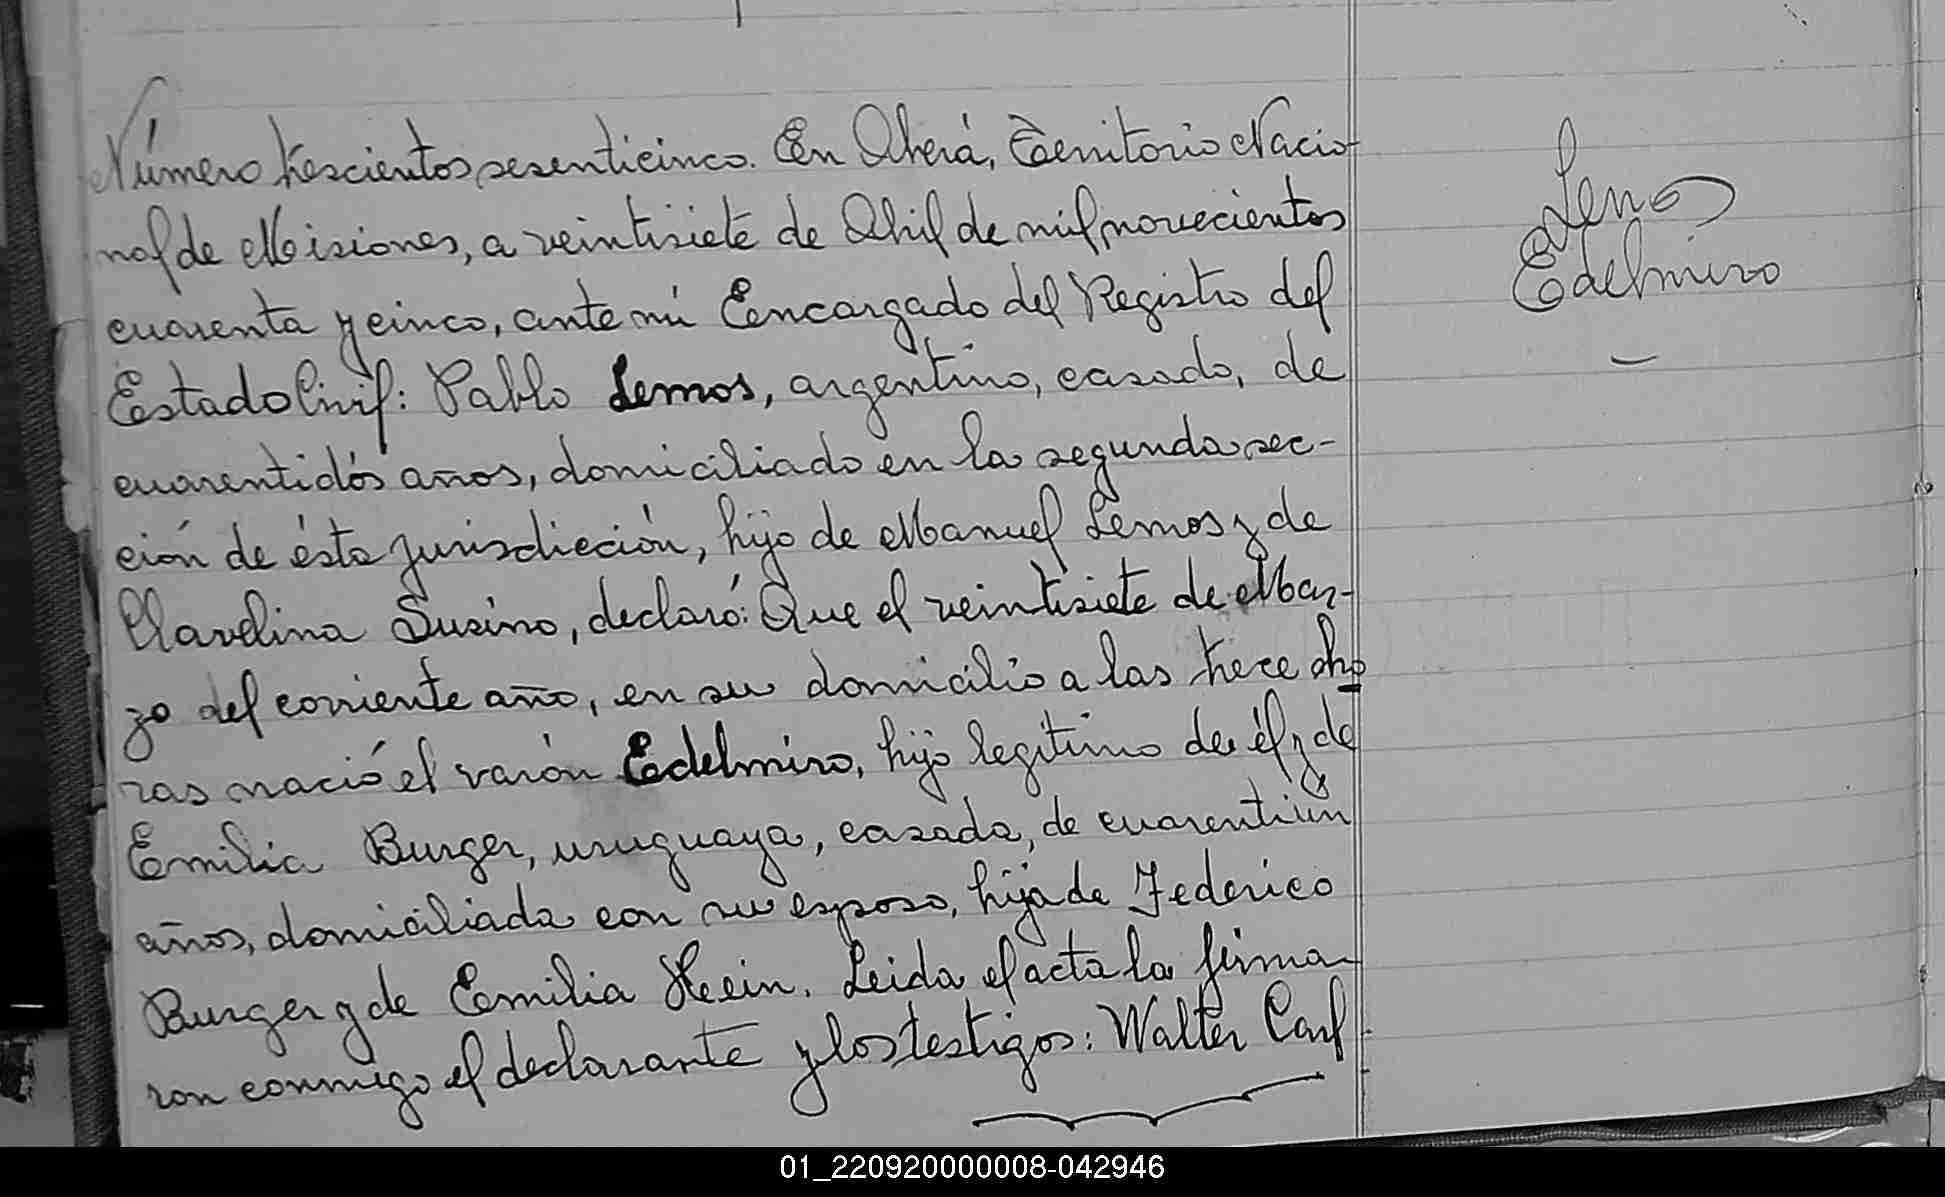 Número trescientos sesenticinco. En Oberá, Territorio Nacio-
nal de Misiones, a veintisiete de Abril de mil novecientos
cuarenta y cinco, ante mi Encargado del Registro del
Estado Civil: Pablo Lemos, argentino, casado, de
cuarentidós años, domiciliado en la segunda sec-
ción de ésta jurisdicción, hijo de Manuel Lemos y de
Clavelina Susino, declaró: Que el veintisiete de Mar-
zo del corriente año, en su domicilio a las trece oho
ras nació el varón Edelmiro, hijo legítimo de él y de
Emilia Burger, uruguaya, casada, de cuarentiún
años, domiciliada con su esposo, hija de Federico
Burger y de Emilia Klein. Leida el acta la firma-
ron conmigo el declarante y los testigos: Walter Carl
Lemos
Edelmiro
01_220920000008-042946